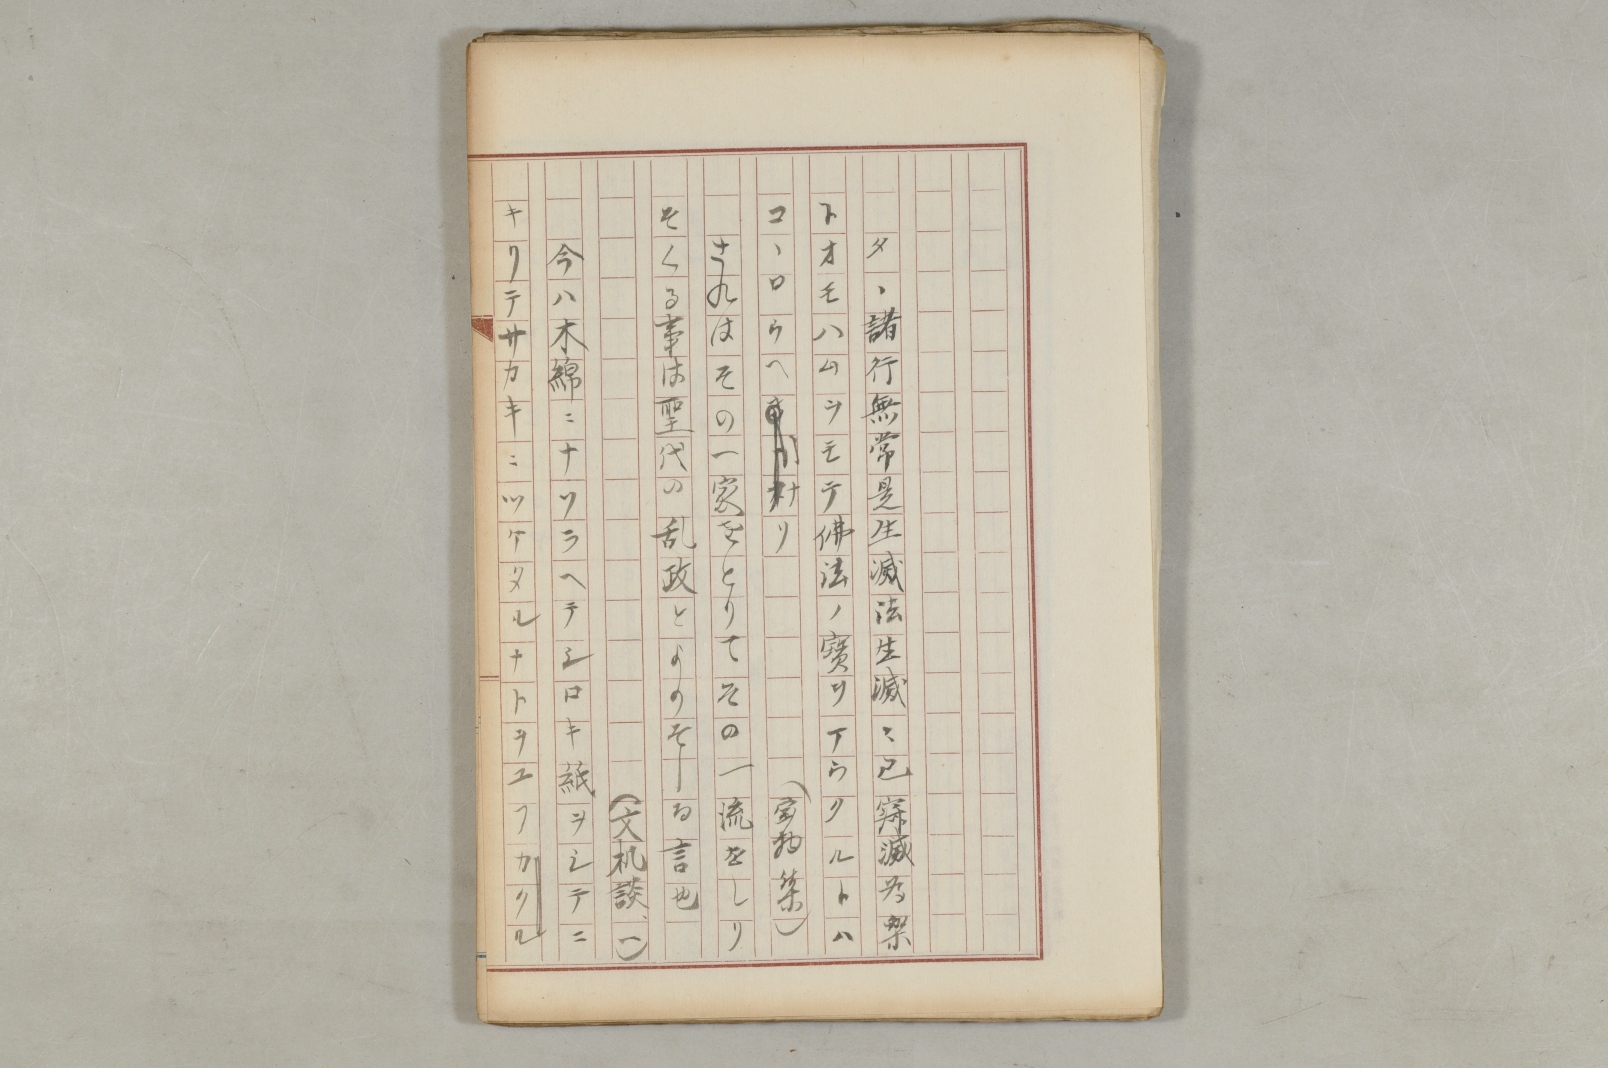 タヽ諸行無常是生滅法生滅〻已寂滅為樂
トオモハムヲモテ佛法ノ寶リアラタルトハ
コヽロウヘ材リ
(宝物集)
され はその一家をとりてその一流をしり
そくる事は聖代の乱政とよのそしる言也
(文机談、一)
今ハ木綿ニナソラヘテシロキ紙ヲシテニ
キリテサカキニツケタルナトヲユフカクル